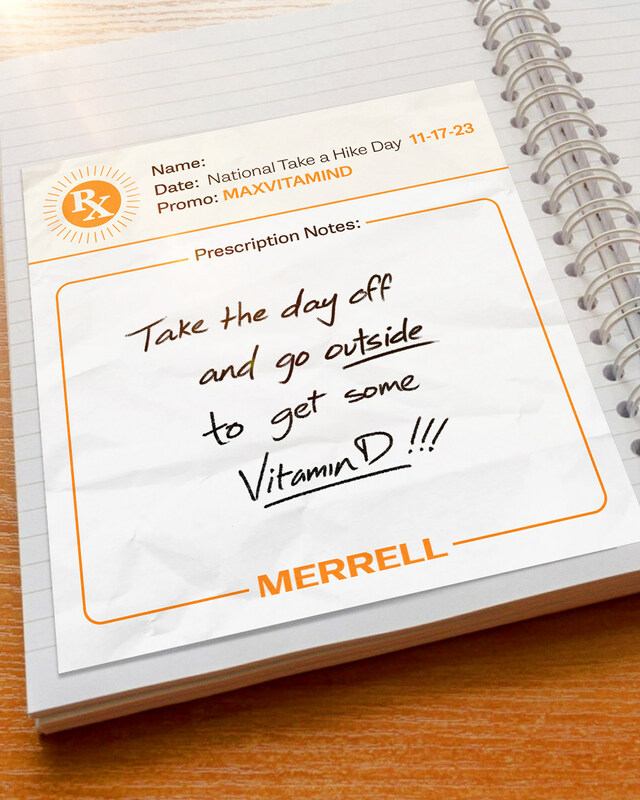 Rx
Name:
Date: National Take a Hike Day 11-17-23
Promo: MAXVITAMIND
Prescription Notes:
Take the day off
and go outside
to get some
Vitamin D!!!
MERRELL